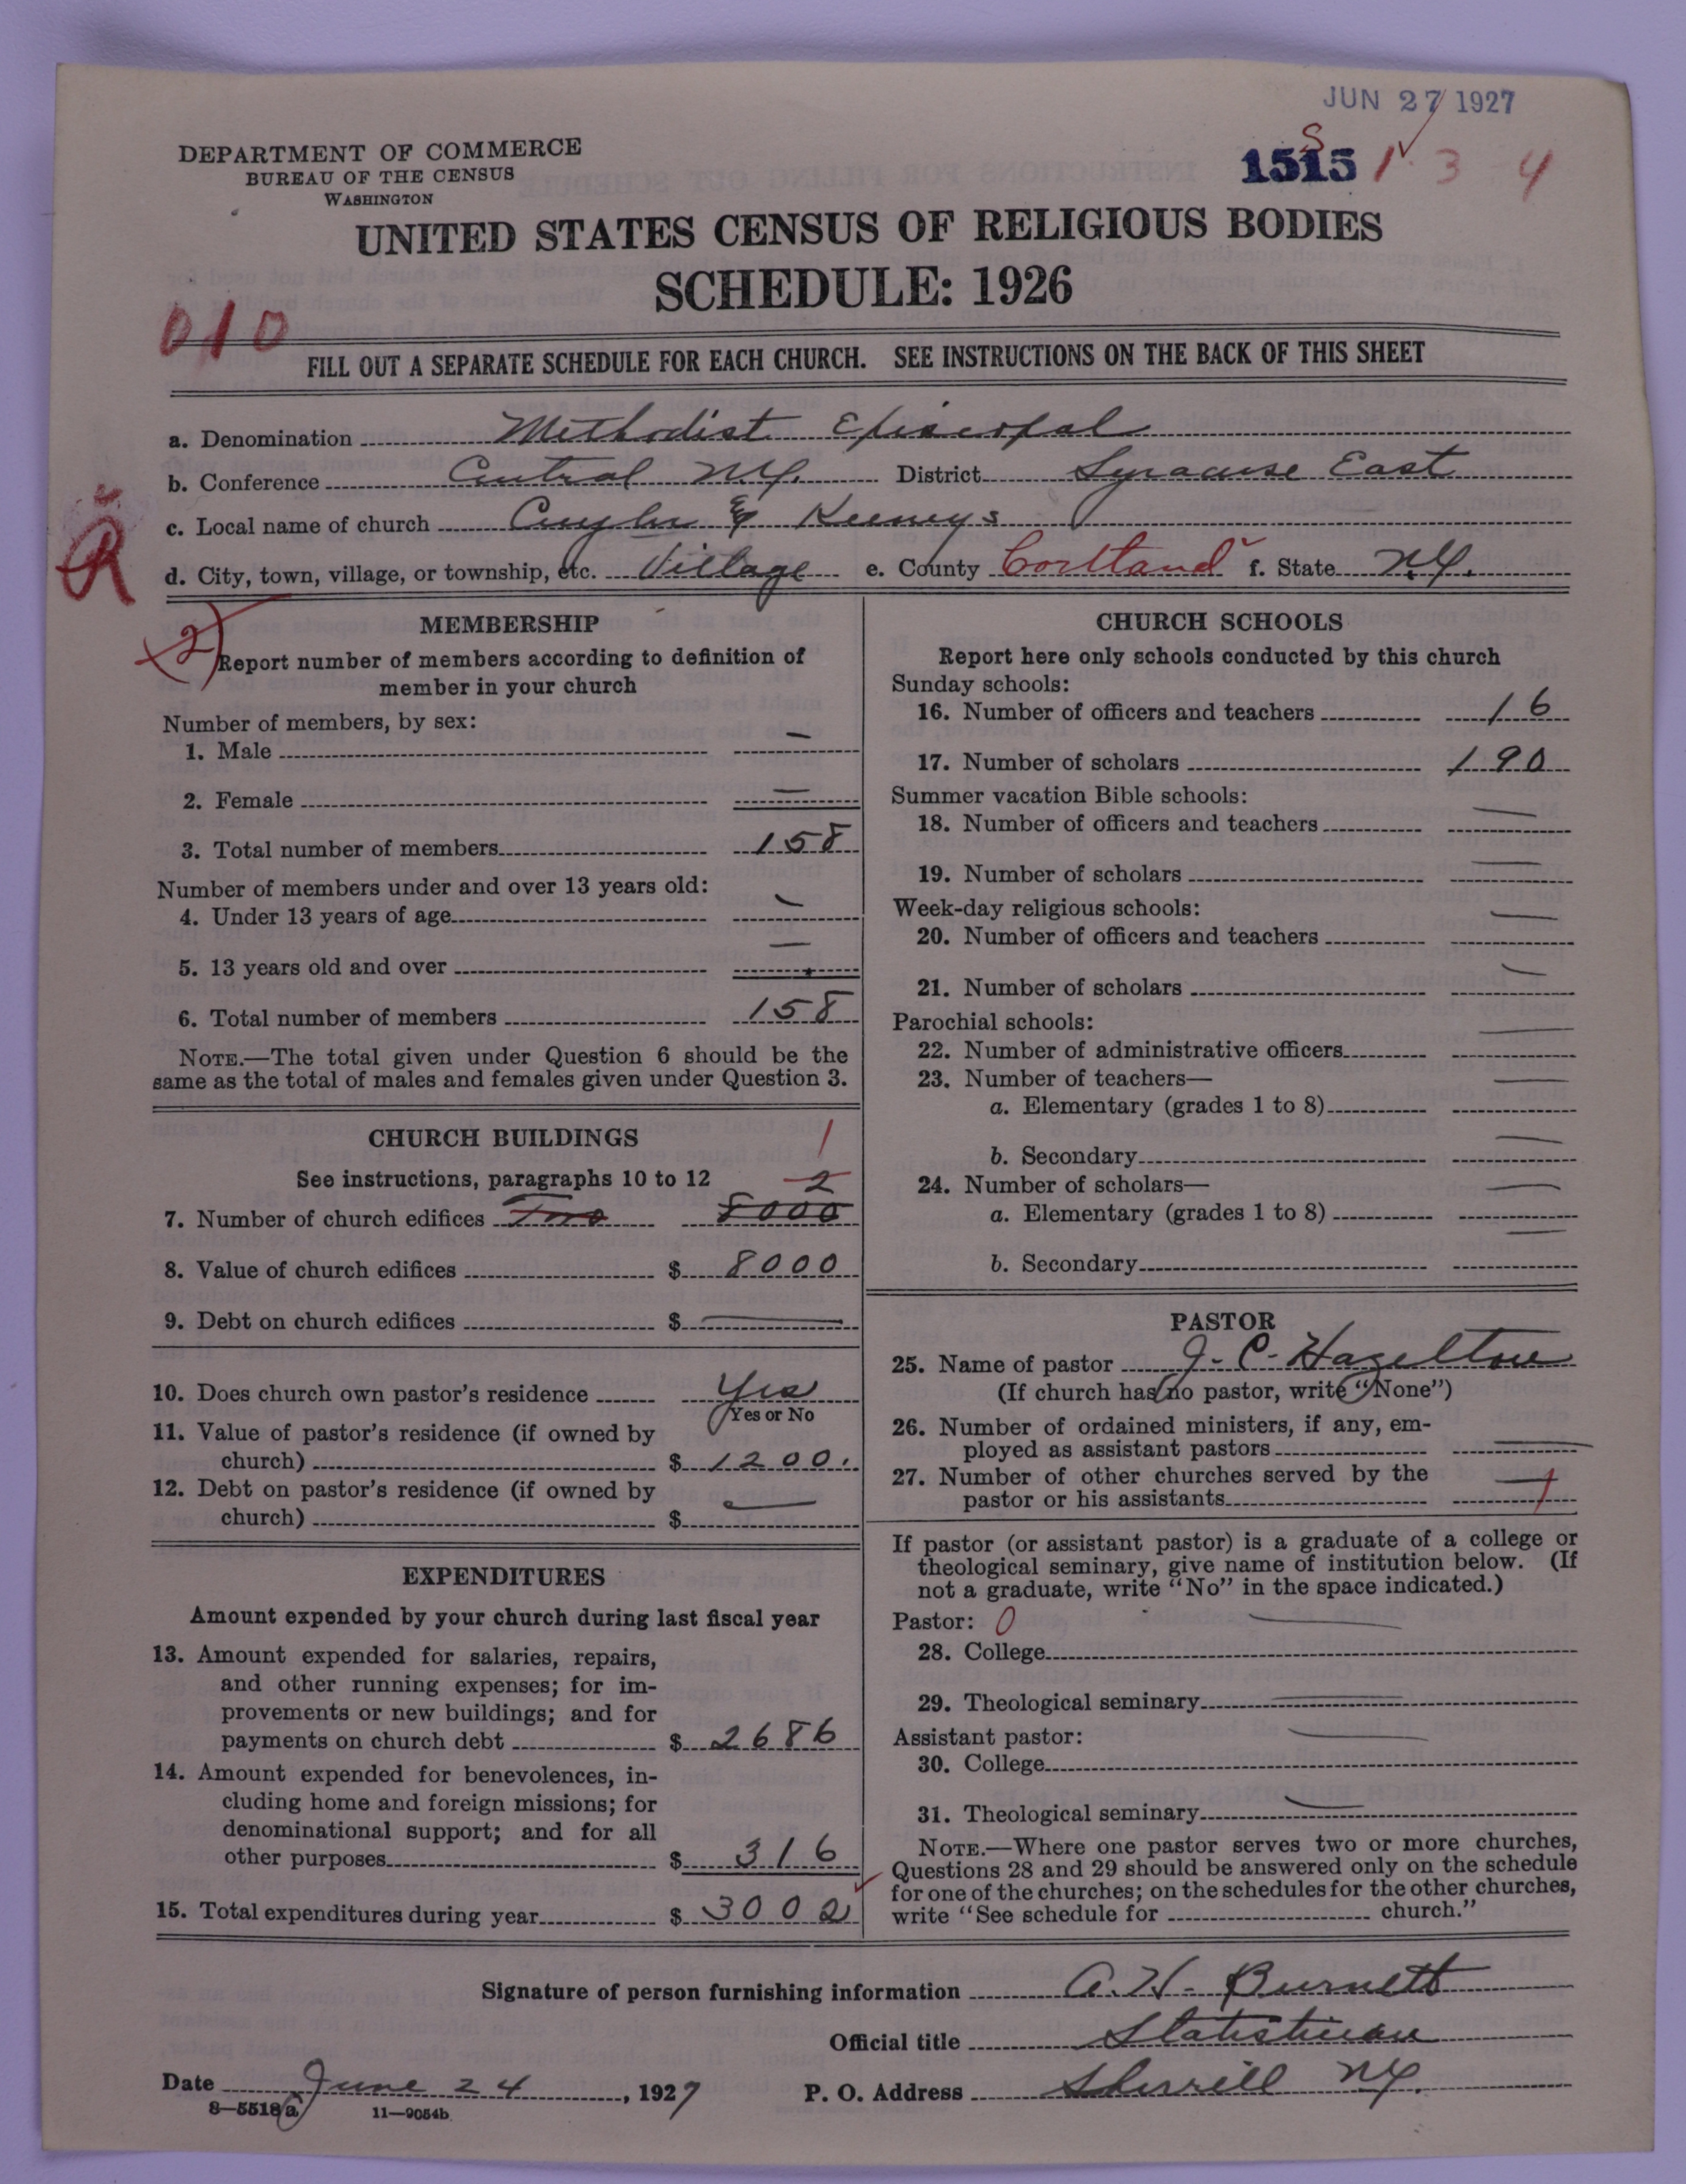 JUN 27 1927
DEPARTMENT OF COMMERCE
BUREAU OF THE CENSUS
WASHINGTON
1515 S 1 3 4
UNITED STATES CENSUS OF RELIGIOUS BODIES
SCHEDULE: 1926
010
FILL OUT A SEPARATE SCHEDULE FOR EACH CHURCH. SEE INSTRUCTIONS ON THE BACK OF THIS SHEET
a. Denomination Methodist Episcopal
b. Conference Central N.Y. District Syracuse East
c. Local name of church Cuyler & Keeneys
R
d. City, town, village, or township, etc. Village e. County Cortland f. State N.Y.
2
MEMBERSHIP
Report number of members according to definition of
member in your church
Number of members, by sex:
1. Male —
2. Female —
3. Total number of members 158
Number of members under and over 13 years old:
4. Under 13 years of age —
5. 13 years old and over —
6. Total number of members 158
NOTE.—The total given under Question 6 should be the
same as the total of males and females given under Question 3.
CHURCH BUILDINGS 1
See instructions, paragraphs 10 to 12 2
7. Number of church edifices Two 8000
8. Value of church edifices $ 8000
9. Debt on church edifices $ —
10. Does church own pastor's residence Yes
Yes or No
11. Value of pastor's residence (if owned by
church) $ 1200.
12. Debt on pastor's residence (if owned by
church) $ —
EXPENDITURES
Amount expended by your church during last fiscal year
13. Amount expended for salaries, repairs,
and other running expenses; for im-
provements or new buildings; and for
payments on church debt $ 2686
14. Amount expended for benevolences, in-
cluding home and foreign missions; for
denominational support; and for all
other purposes $ 316
15. Total expenditures during year $ 3002
CHURCH SCHOOLS
Report here only schools conducted by this church
Sunday schools:
16. Number of officers and teachers 16
17. Number of scholars 190
Summer vacation Bible schools:
18. Number of officers and teachers —
19. Number of scholars —
Week-day religious schools:
20. Number of officers and teachers —
21. Number of scholars —
Parochial schools:
22. Number of administrative officers —
23. Number of teachers—
a. Elementary (grades 1 to 8) —
b. Secondary —
24. Number of scholars—
a. Elementary (grades 1 to 8) —
b. Secondary —
PASTOR
25. Name of pastor J. C. Hazelton
(If church has no pastor, write "None")
26. Number of ordained ministers, if any, em-
ployed as assistant pastors —
27. Number of other churches served by the
pastor or his assistants — 1
If pastor (or assistant pastor) is a graduate of a college or
theological seminary, give name of institution below. (If
not a graduate, write "No" in the space indicated.)
Pastor: 0
28. College —
29. Theological seminary —
Assistant pastor:
30. College —
31. Theological seminary —
NOTE.—Where one pastor serves two or more churches,
Questions 28 and 29 should be answered only on the schedule
for one of the churches; on the schedules for the other churches,
write "See schedule for church."
Signature of person furnishing information A. H. Burnett
Official title Statistician
Date June 24, 1927 P. O. Address Sherrill N.Y.
8—5518a 11—9054b